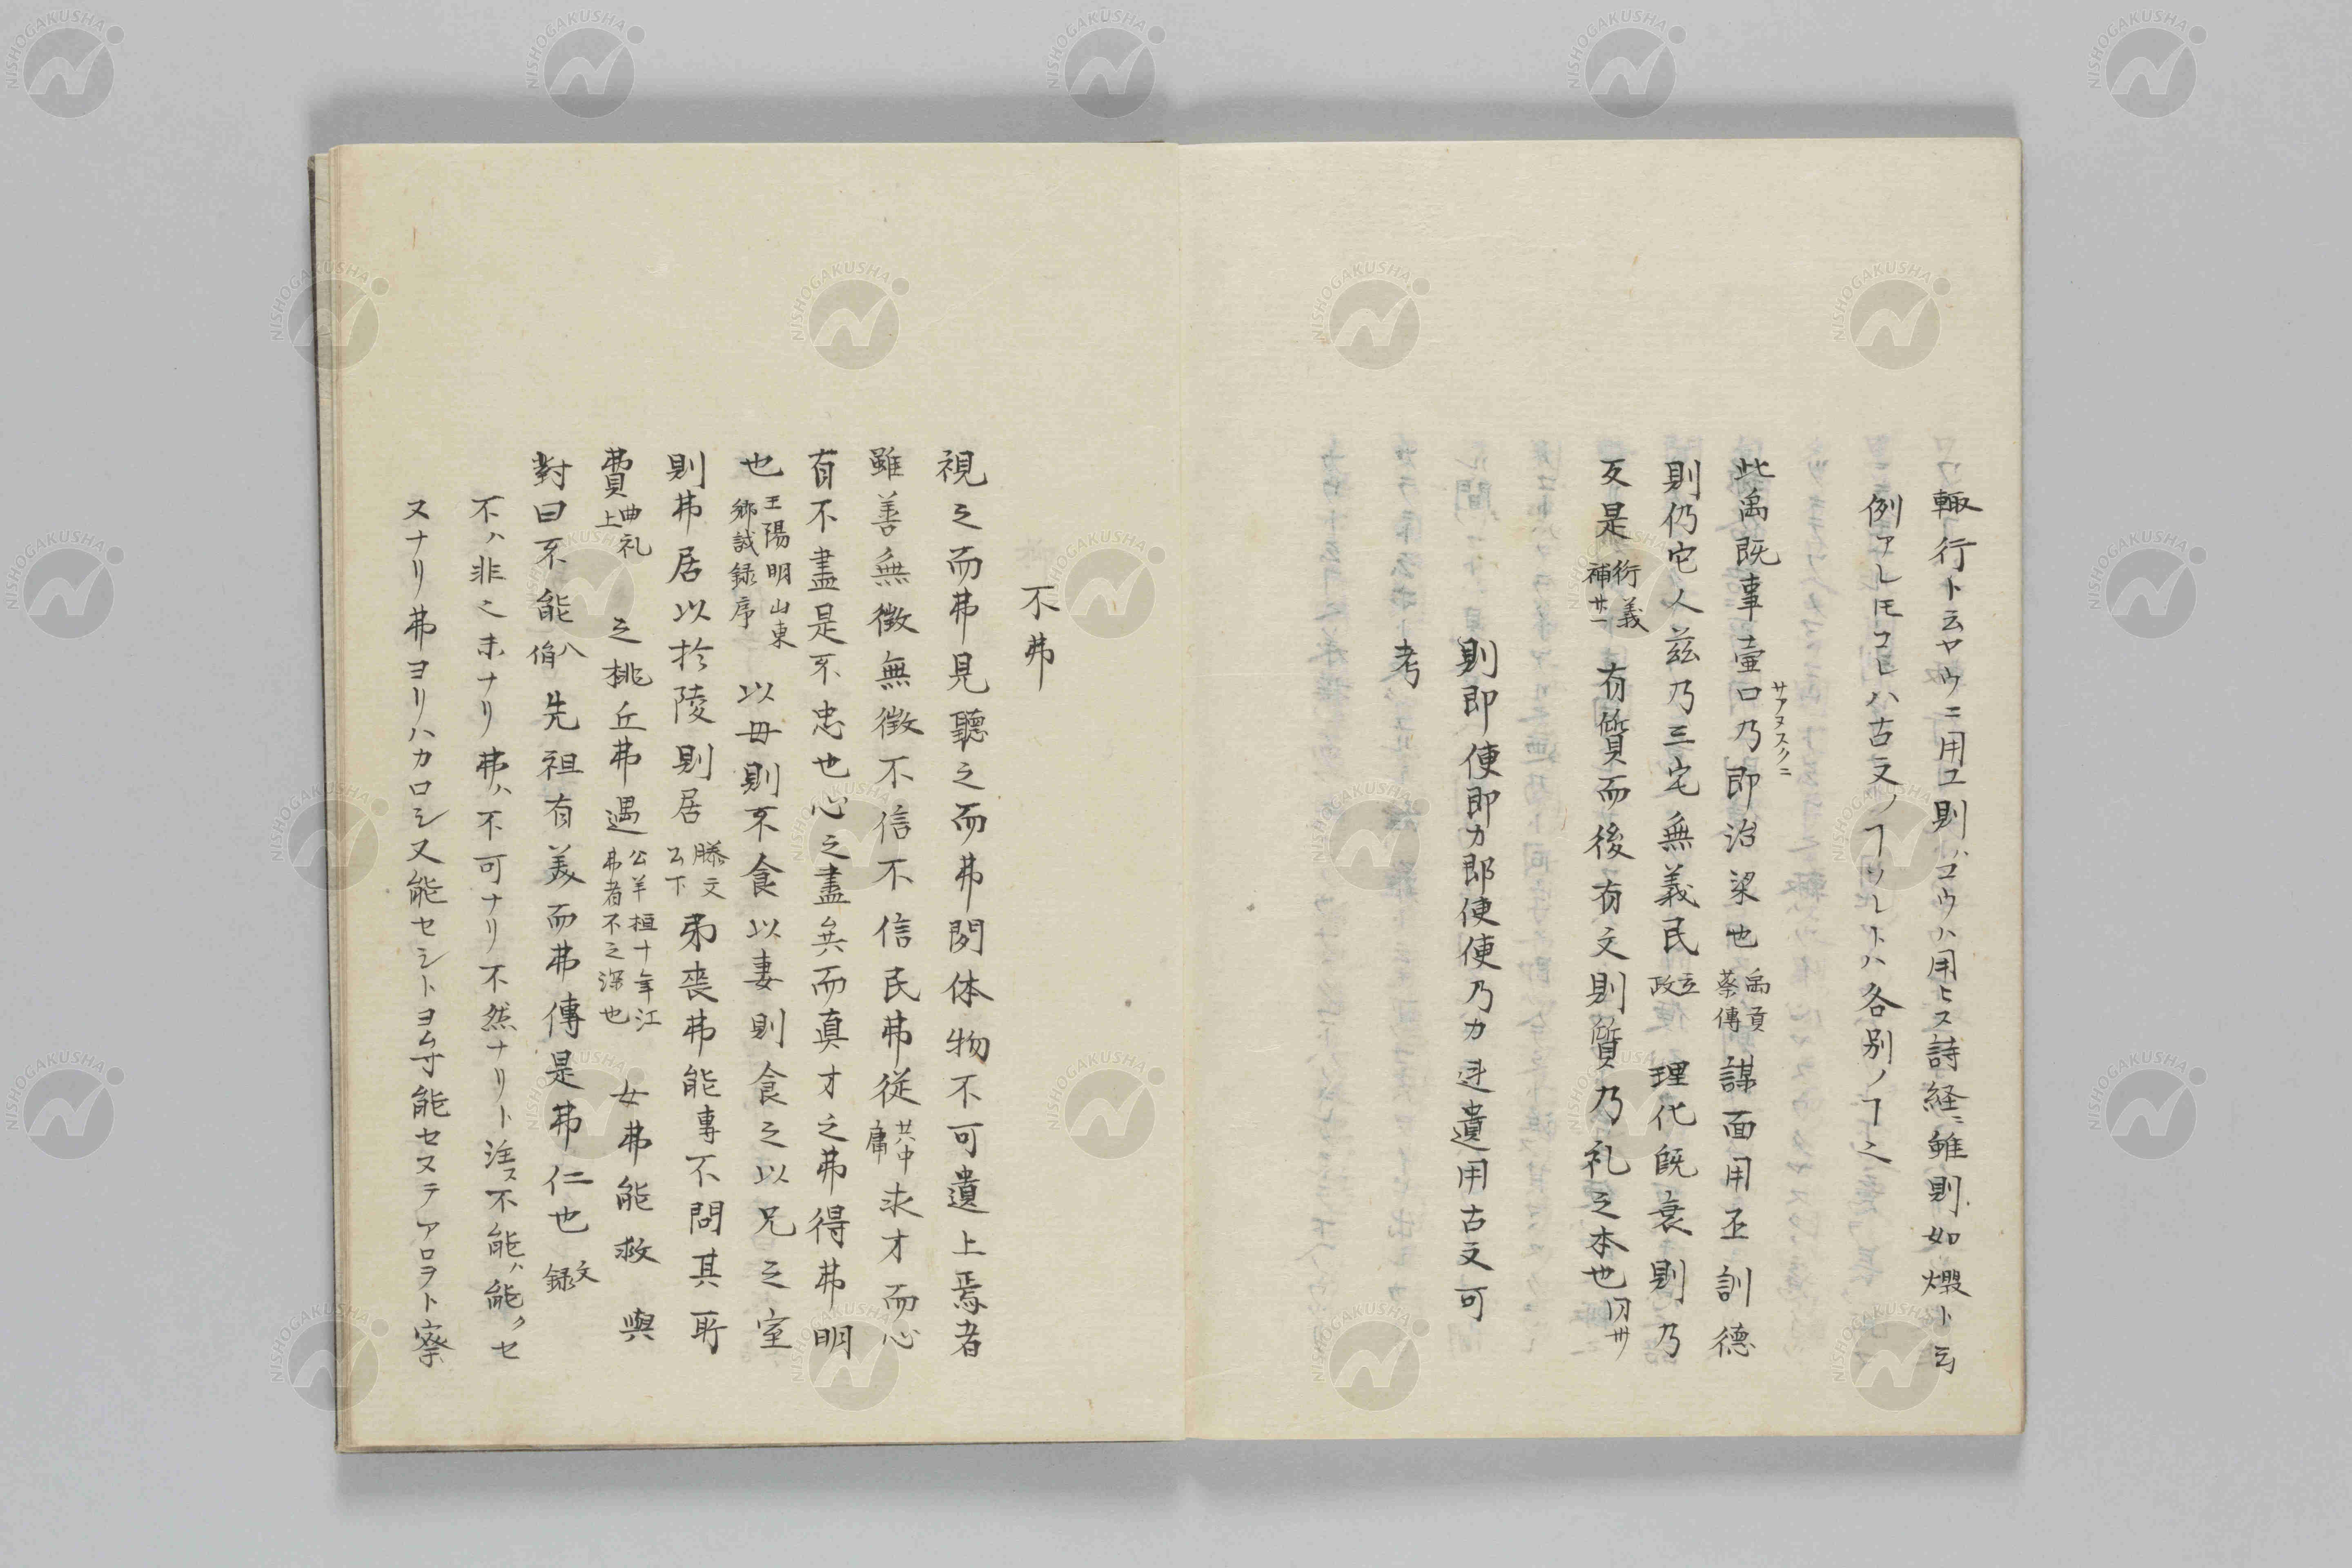 輙行ト云ヤウニ用ユ則ゴウハ用ヒス詩経ニ雖則如燬ト云
例アレ𪜈コレハ古文ノヿソレトハ各別ノヿ也
此禹既事壷口乃即治梁也禹貢蔡傳謀面用丕訓德
則仍宅人茲乃三宅無義民立政理化既衰則乃
反是衍義補廿一有質而後有文則質乃礼之本也同卅
則即使即カ即使使乃カ迸遺用古文可
考
不弗
視之而弗見聽之而弗聞体物不可遺上焉者
雖善無徴無徴不信不信民弗従中庸廿八求才而心
有不盡是不忠也心之盡矣而真才之弗得弗明
也王陽明山東郷試録序以母則不食以妻則食之以兄之室
則弗居以於陵則居滕文公下弟喪弗能專不問其所
費曲礼上之桃丘弗遇公羊桓十年江弗者不之深也女弗能救與
對曰不能八佾先祖有美而弗傳是弗仁也文録
不ハ非之未ナリ弗ハ不可ナリ不然ナリト注ス不能ハ能クセ
ヌナリ弗ヨリハカロシ又能セシトヨム寸能セステアロヲト察